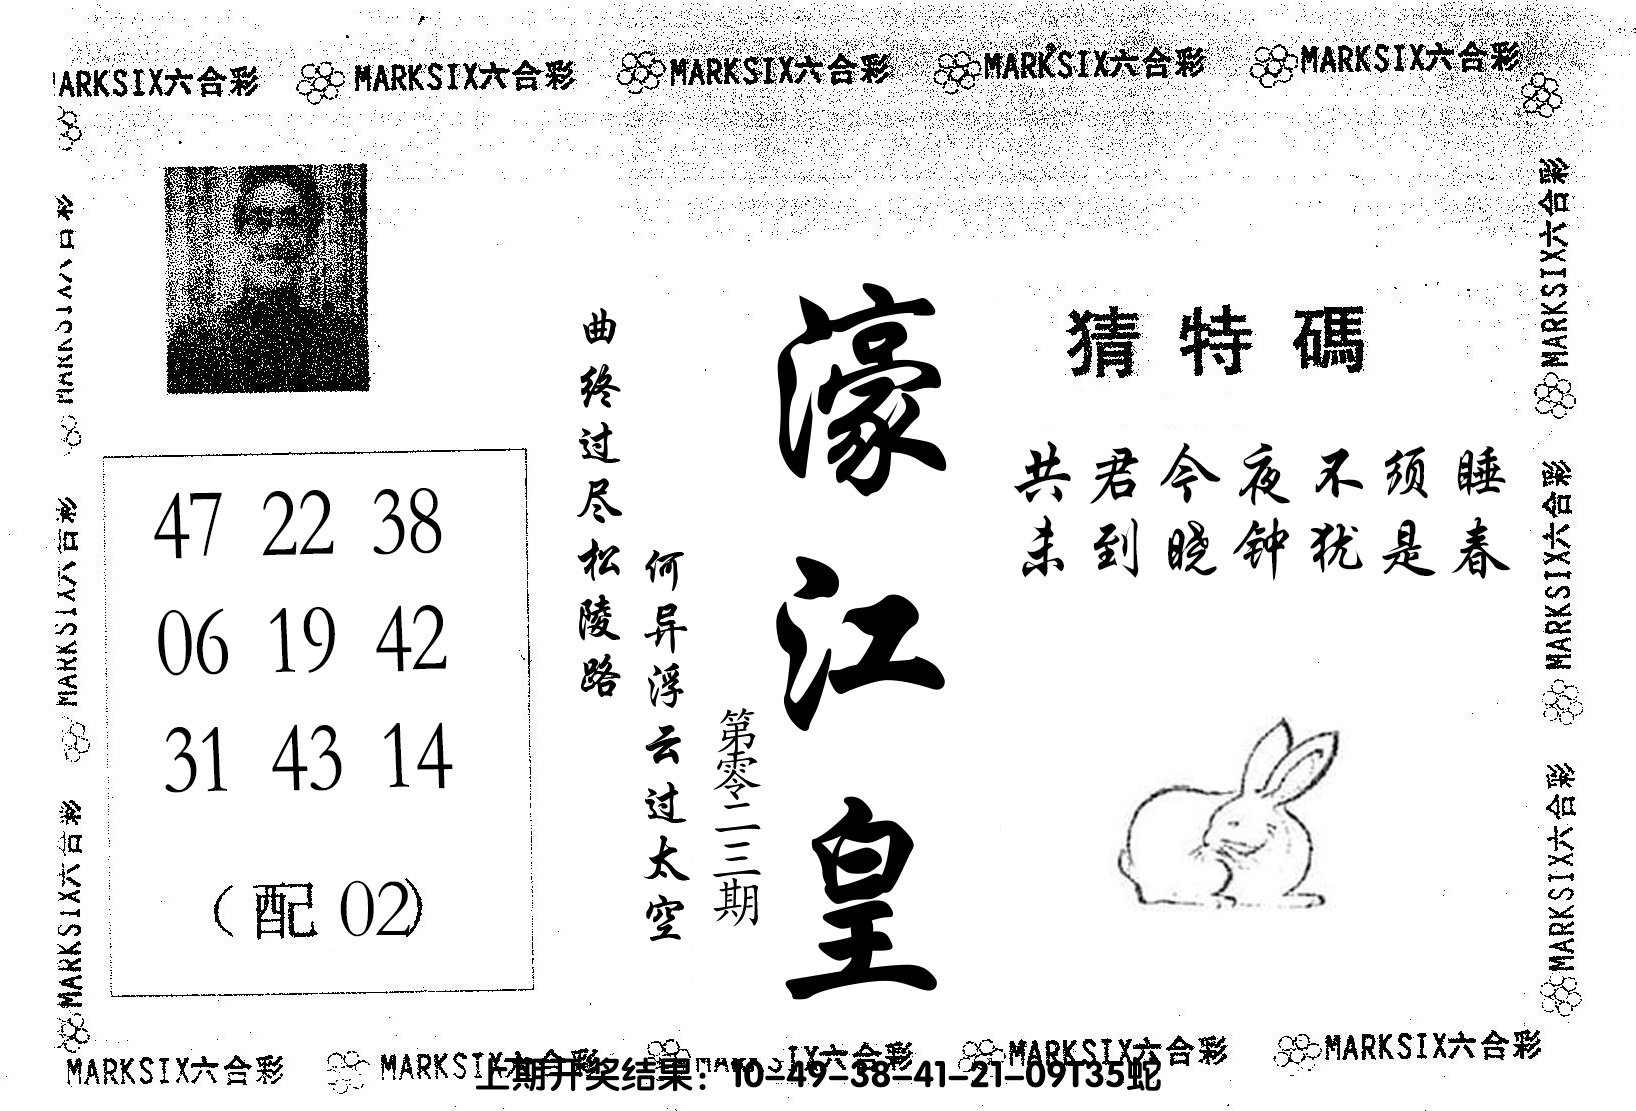 MARKSIX六合彩 MARKSIX六合彩 MARKSIX六合彩 MARKSIX六合彩
MARKSIX六合彩
MARKSIX六合彩
MARKSIX六合彩
MARKSIX六合彩
MARKSIX六合彩
47 22 38
06 19 42
31 43 14
（配 02）
曲终过尽松陵路
何异浮云过太空
第零二三期
濠江皇
猜特碼
共君今夜不须睡
未到晓钟犹是春
MARKSIX六合彩 MARKSIX六合彩 MARKSIX六合彩 MARKSIX六合彩
上期开奖结果：10-49-38-41-21-09T35蛇